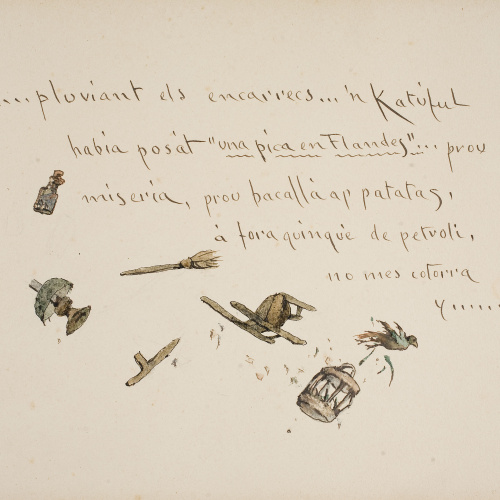 ....pluviant els encarrecs... 'n Katúful
habia posát "una pica en Flandes"... prou
miseria, prou bacallá ap patatas,
á fora quinqué de petroli,
no mes cotorra
y......